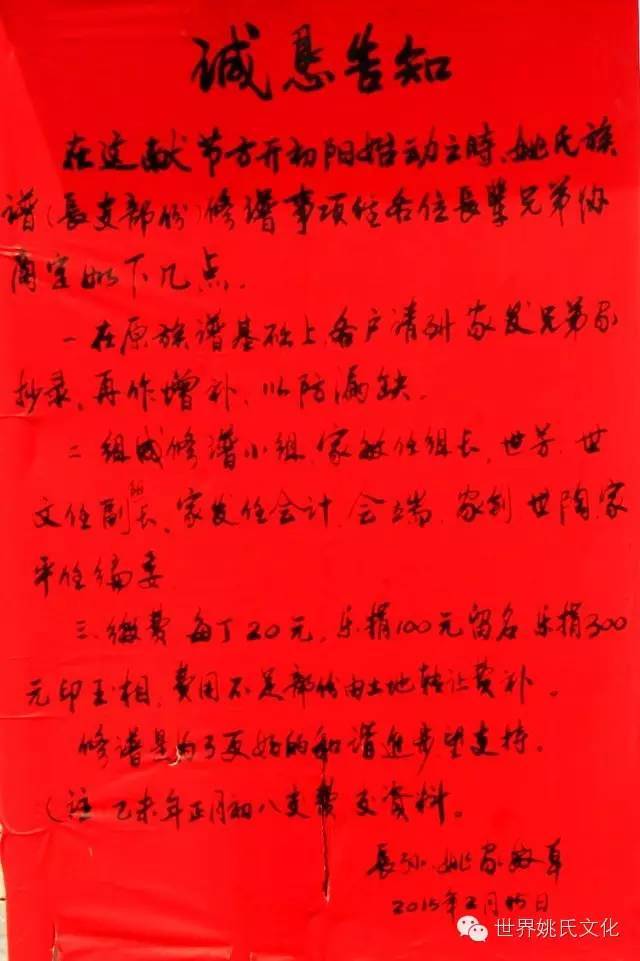 诚恳告知
在这献节方开初阳始动之時、姚氏族
谱(長支部份)修谱事项经各位長辈兄弟协
商定如下几点.
一.在原族谱基础上,各户请到家发兄弟家
抄录、再作增补、以防漏缺.
二.组成修谱小组、家敏任组长、世芳、世
文任副组长、家发任会计、会瑞、家创、世陶、家
平任编委
三.缴费每丁20元,乐捐100元留名 乐捐300
元印玉相,费用不足部份由土地转让费补。
修谱是为了更好的和谐進步望支持。
(注 乙未年正月初八支费 交资料。
長孙 姚家敏草
2015年2月25日
世界姚氏文化